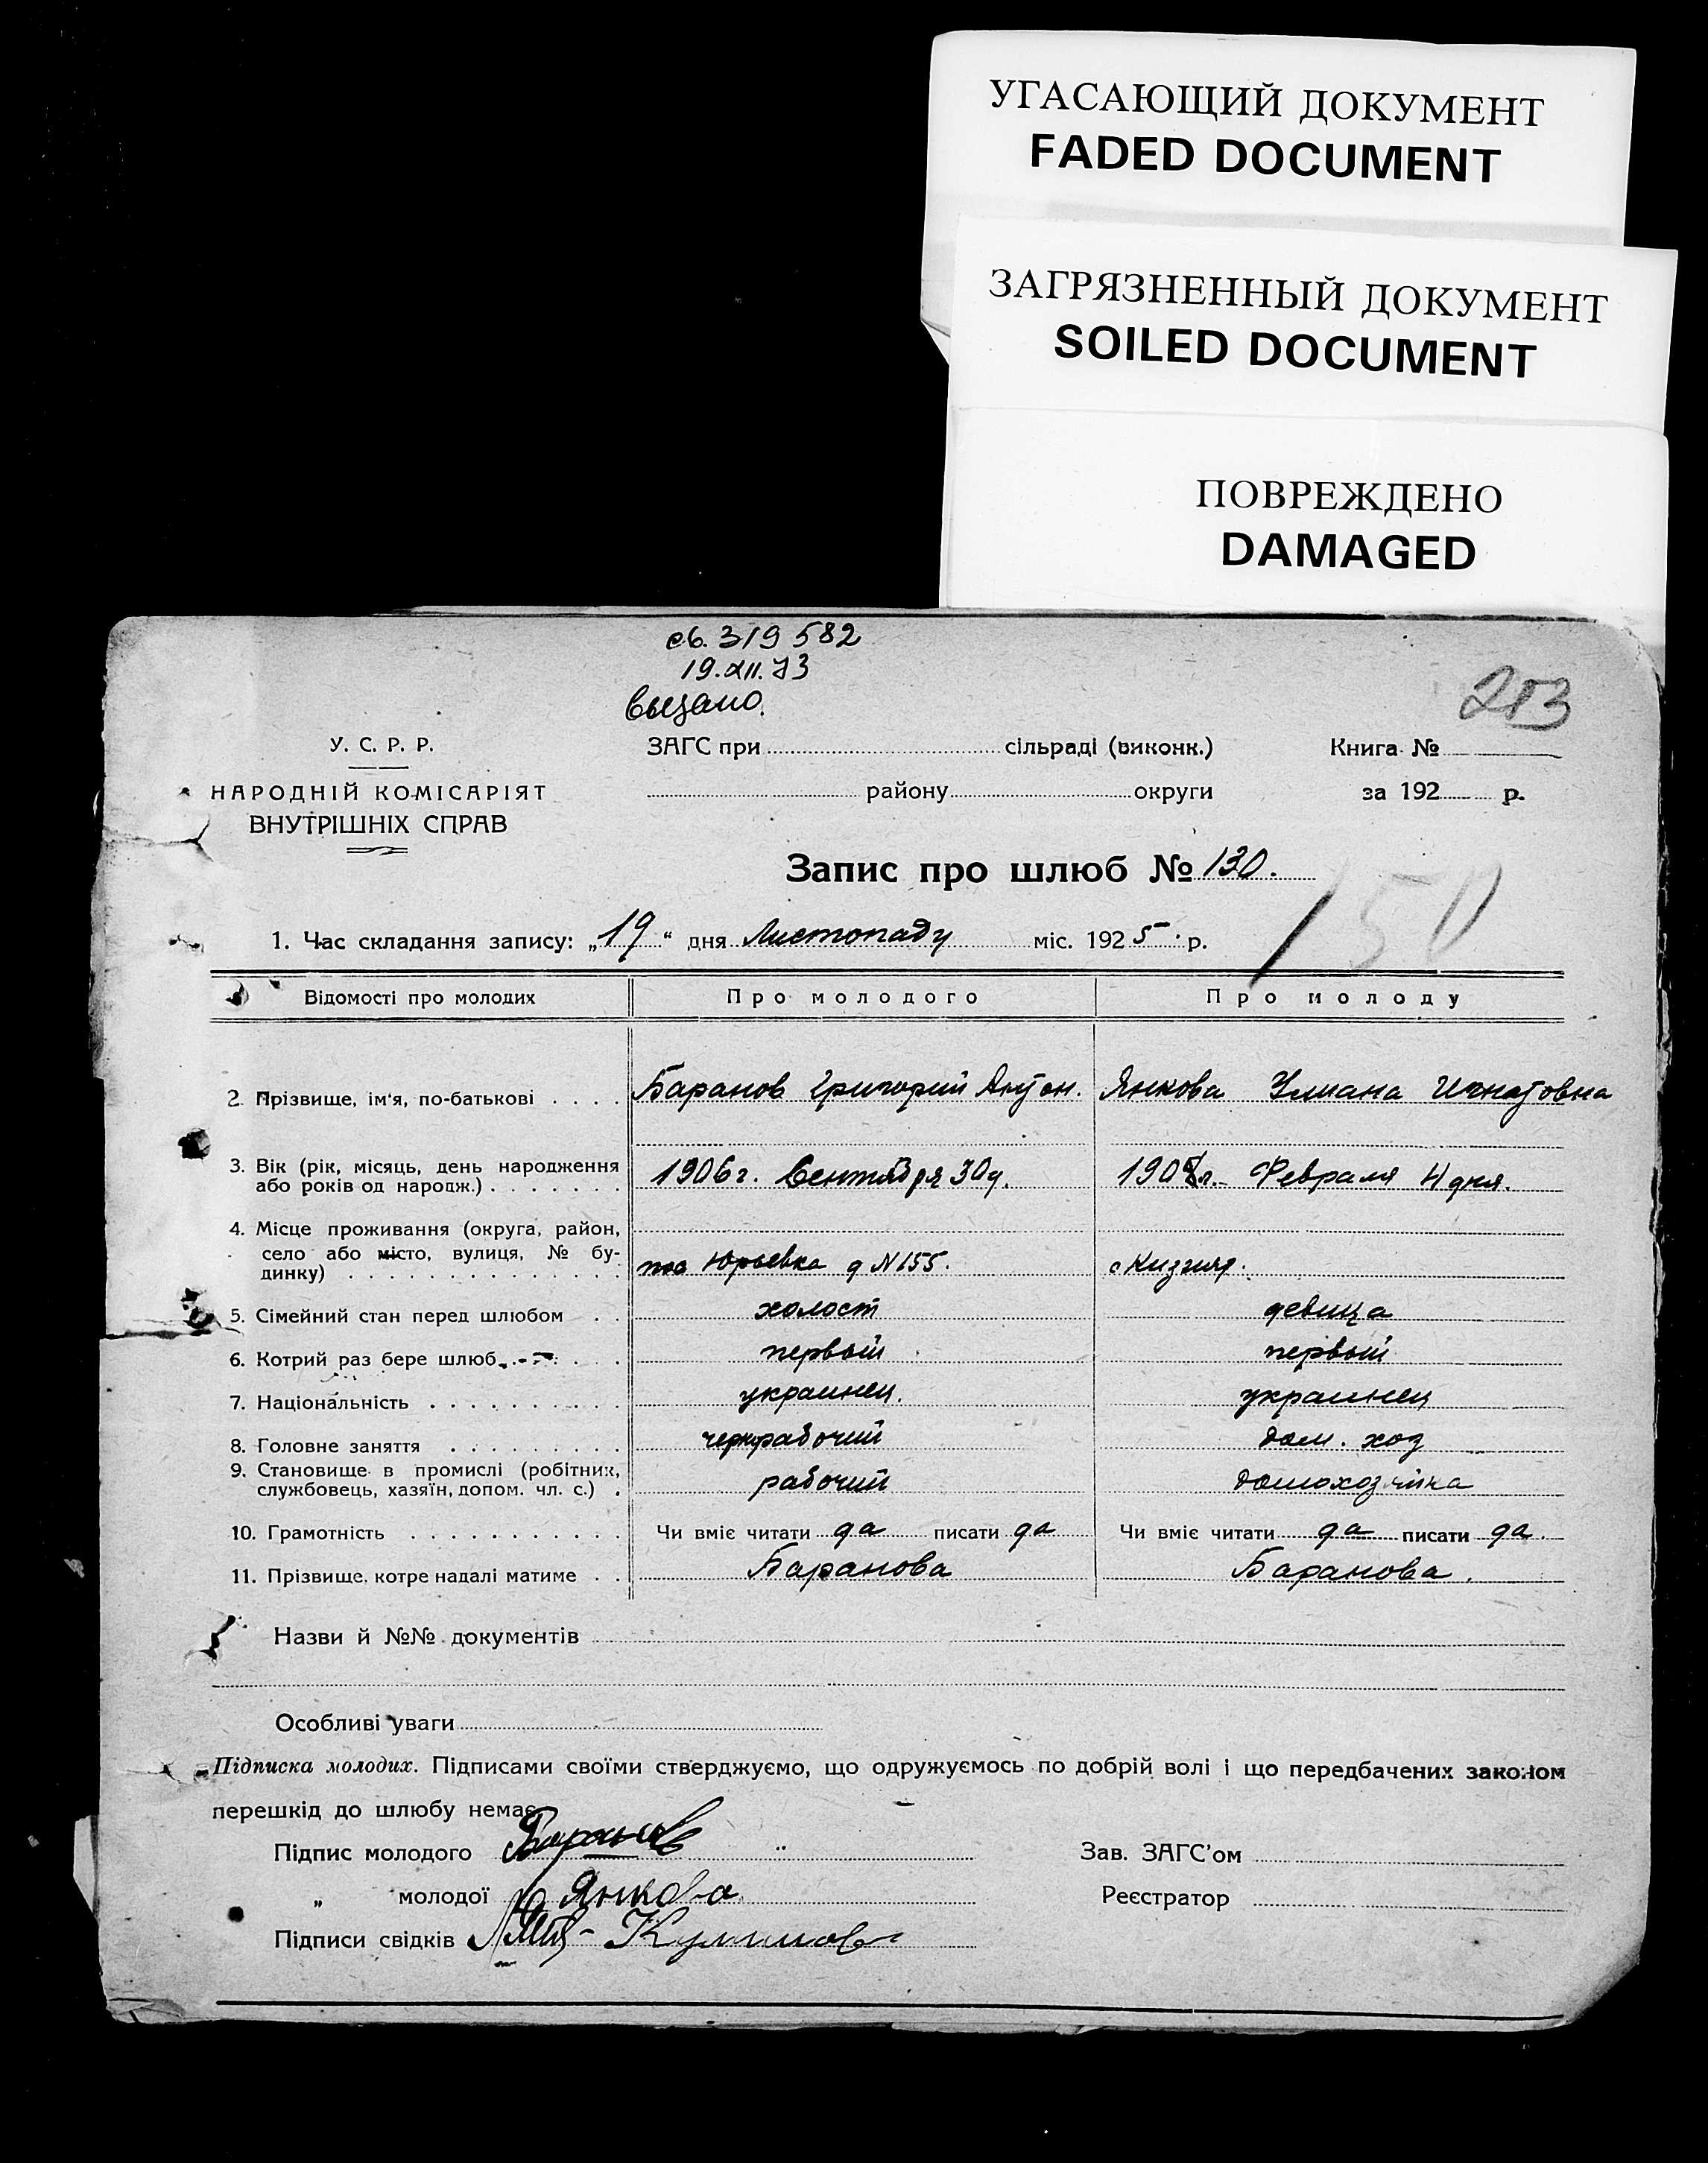 УГАСАЮЩИЙ ДОКУМЕНТ
FADED DOCUMENT
ЗАГРЯЗНЕННЫЙ ДОКУМЕНТ
SOILED DOCUMENT
ПОВРЕЖДЕНО
DAMAGED
св. 319582
19.XII.73
выдано.
283
У. С. Р. Р.
НАРОДНІЙ КОМІСАРІЯТ
ВНУТРІШНІХ СПРАВ
ЗАГС при сільраді (виконк.)
району округи
Книга №
за 192 р.
Запис про шлюб № 130.
150
1. Час складання запису: „19“ дня Листопаду міс. 1925 р.
Відомості про молодих Про молодого Про молоду
2. Прізвище, ім'я, по-батькові . . . . Баранов Григорий Антон. Янкова Ульяна Игнатовна
3. Вік (рік, місяць, день народження
або років од народж.) . . . . . . . 1906 г. Сентября 30 д. Февраля 4 дня.
4. Місце проживання (округа, район,
село або місто, вулиця, № бу-
динку) . . . . . . . . . . . . . . Юрьевка д N 155.
5. Сімейний стан перед шлюбом . . холост девица
6. Котрий раз бере шлюб . . . первый первый
7. Національність . . . . . . . . . . украинец. украинец
8. Головне заняття . . . . . . . . . чернорабочий дом. хоз
9. Становище в промислі (робітник,
службовець, хазяїн, допом. чл. с.) . рабочий домохозяйка
10. Грамотність . . . . . . . . . . . Чи вміє читати да писати да Чи вміє читати да писати да.
11. Прізвище, котре надалі матиме . . Баранова Баранова.
Назви й №№ документів
Особливі уваги
Підписка молодих. Підписами своїми стверджуємо, що одружуємось по добрій волі і що передбачених законом
перешкід до шлюбу немає
Підпис молодого Баранов Зав. ЗАГС'ом
„ молодої Янкова Реєстратор
Підписи свідків